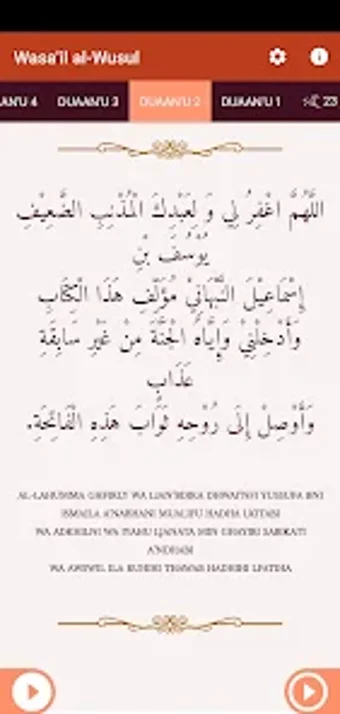 Wasa'il al-Wusul
AN'U 4 DUAAN'U 3 DUAAN'U 2 DUAAN'U 1 23
اللَّهُمَّ اغْفِرْ لِي وَ لِعَبْدِكَ الْمُذْنِبِ الضَّعِيْفِ
يُوْسُفَ بْنِ
إِسْمَاعِيْلَ النَّبْهَانِيْ مُؤَلِّفِ هَذَا الْكِتَابِ
وَأَدْخِلْنِيْ وَإِيَّاهُ الْجَنَّةَ مِنْ غَيْرِ سَابِقَةِ
عَذَابٍ
وَأَوْصِلْ إِلَى رُوْحِهِ ثَوَابَ هَذِهِ الْفَاتِحَةِ.
AL-LAHUMMA GHFIRLY WA LIAN'BDIKA
YUSUUFA BNI
ISMAILA A'NABHANI MUALIFU HADHA LKITABI
WA ADKHILNI WA IYAHU LJANATA MIN GHAYIRI SABIKATI
A'NDHABI
WA AWSWIL ILA RUHIHI THAWAB HADHIHI LFATIHA